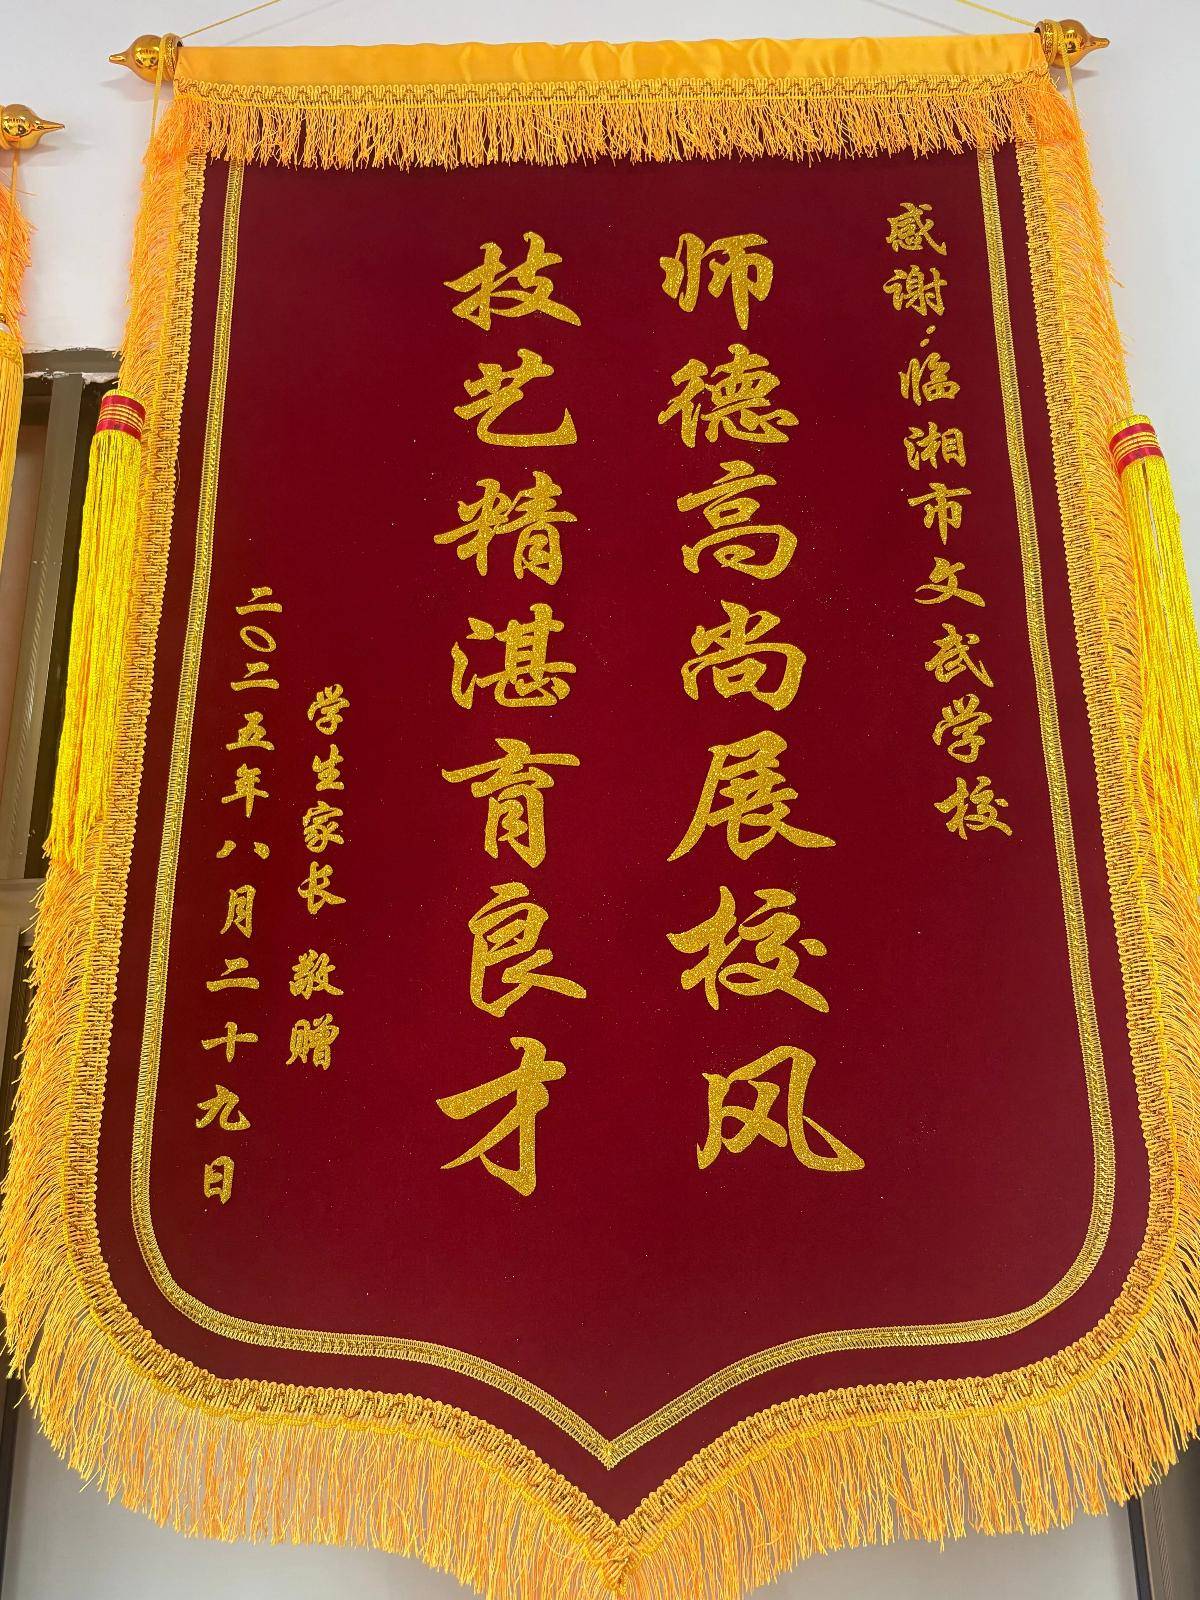 感谢：临湘市文武学校
师德高尚展校风
技艺精湛育良才
学生家长 敬赠
二〇二五年八月二十九日